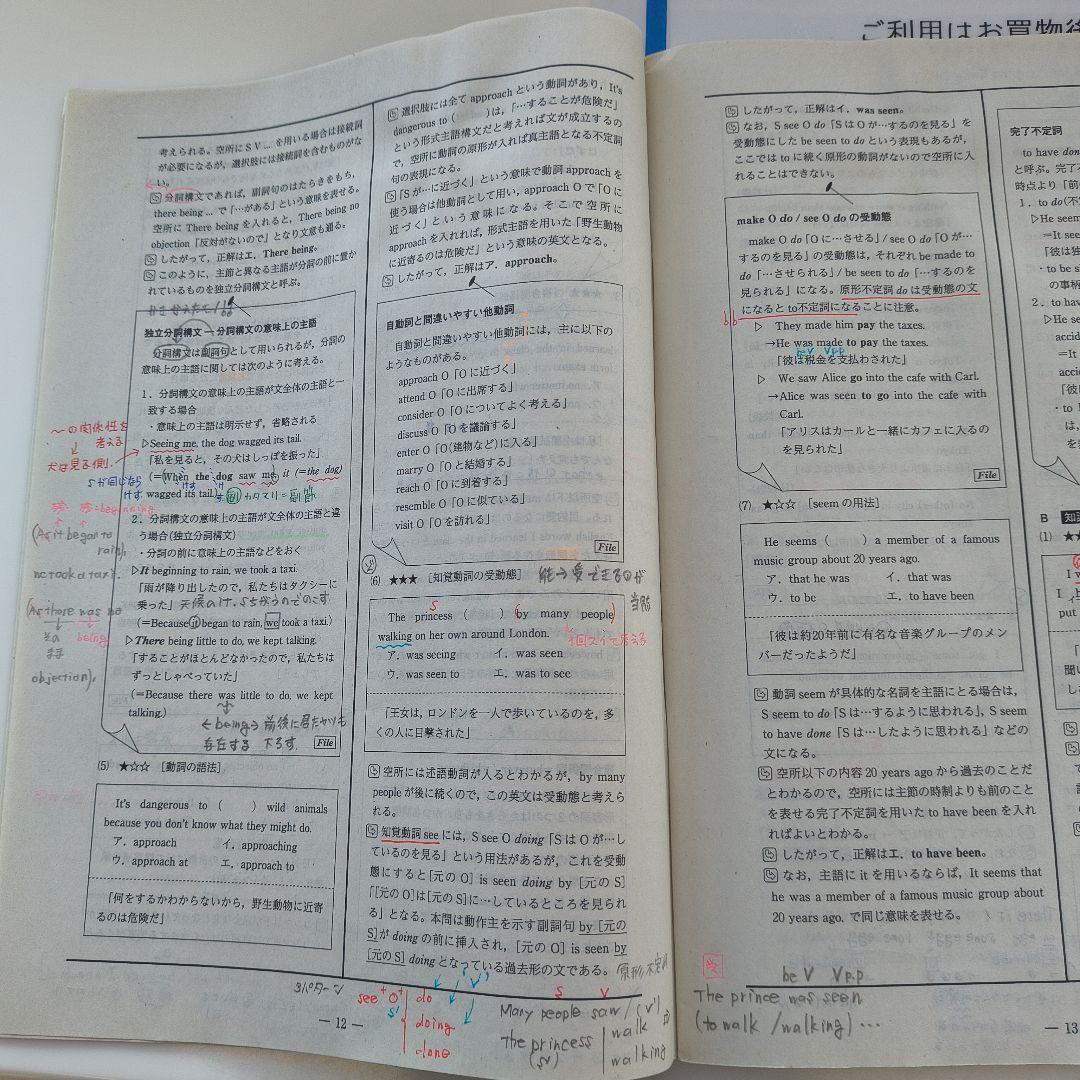 ご利用はお買物後
考えられる。空所に S V ... を用いる場合は接続詞
が必要になるが，選択肢には接続詞を含むものがな
い。
分詞構文であれば，副詞句のはたらきをもち，
there being ... で「…がある」という意味を表せる。
空所に There being を入れると，There being no
objection「反対がないので」となり文意も通る。
したがって，正解はエ．There being。
このように，主節と異なる主語が分詞の前に置か
れているものを独立分詞構文と呼ぶ。
独立分詞構文 ― 分詞構文の意味上の主語
分詞構文は副詞句として用いられるが，分詞の
意味上の主語に関しては次のように考える。
1．分詞構文の意味上の主語が文全体の主語と一
致する場合
・意味上の主語は明示せず，省略される
▷Seeing me, the dog wagged its tail.
「私を見ると，その犬はしっぽを振った」
(=When the dog saw me, it (=the dog)
wagged its tail.)
2．分詞構文の意味上の主語が文全体の主語と違
う場合(独立分詞構文)
・分詞の前に意味上の主語などをおく
▷It beginning to rain, we took a taxi.
「雨が降り出したので，私たちはタクシーに
乗った」
(=Because it began to rain, we took a taxi.)
▷There being little to do, we kept talking.
「することがほとんどなかったので，私たちは
ずっとしゃべっていた」
(=Because there was little to do, we kept
talking.)
← being → 前後に君たかりも
存在する 下ろす.
File
〜の関係性を
考える
犬は見る側.
(As it began to
rain),
we took a taxi.
(As there was no
being
objection),
(5) ★☆☆ [動詞の語法]
It's dangerous to (　　) wild animals
because you don't know what they might do.
ア．approach　イ．approaching
ウ．approach at　エ．approach to
「何をするかわからないから，野生動物に近寄
るのは危険だ」
― 12 ―
選択肢には全て approach という動詞があり，It's
dangerous to (　　)は，「…することが危険だ」
という形式主語構文だと考えれば文が成立するの
で，空所に動詞の原形が入れば真主語となる不定詞
句の表現になる。
「S が…に近づく」という意味で動詞 approach を
使う場合は他動詞として用い，approach O で「O に
近づく」という意味になる。そこで空所に
approach を入れれば，形式主語を用いた「野生動物
に近寄るのは危険だ」という意味の英文となる。
したがって，正解はア．approach。
自動詞と間違いやすい他動詞
自動詞と間違いやすい他動詞には，主に以下の
ようなものがある。
approach O「O に近づく」
attend O「O に出席する」
consider O「O についてよく考える」
discuss O「O を議論する」
enter O「O(建物など)に入る」
marry O「O と結婚する」
reach O「O に到着する」
resemble O「O に似ている」
visit O「O を訪れる」
File
(6) ★★★ [知覚動詞の受動態]
The princess (　　) by many people
walking on her own around London.
ア．was seeing　イ．was seen
ウ．was seen to　エ．was to see
「王女は，ロンドンを一人で歩いているのを，多
くの人に目撃された」
空所には述語動詞が入るとわかるが，by many
people が後に続くので，この英文は受動態と考えら
れる。
知覚動詞 see には，S see O doing「S は O が…し
ているのを見る」という用法があるが，これを受動
態にすると[元の O] is seen doing by [元の S]
「[元の O]は[元の S]に…しているところを見られ
る」となる。本問は動作主を示す副詞句 by [元の
S]が doing の前に挿入され，[元の O] is seen by
[元の S] doing となっている過去形の文である。
原形不定詞
3パターン
see + O +
do
doing
done
S V
Many people saw (v')
the princess
(s')
walk
walking
したがって，正解はイ．was seen。
なお，S see O do「S は O が…するのを見る」を
受動態にした be seen to do という表現もあるが，
ここでは to に続く原形の動詞がないので空所に入
れることはできない。
make O do / see O do の受動態
make O do「O に…させる」/ see O do「O が…
するのを見る」の受動態は，それぞれ be made to
do「…させられる」/ be seen to do「…するのを
見られる」になる。原形不定詞 do は受動態の文
になると to 不定詞になることに注意。
▷ They made him pay the taxes.
→He was made to pay the taxes.
be V Vp.p
「彼は税金を支払わされた」
▷ We saw Alice go into the cafe with Carl.
→Alice was seen to go into the cafe with
Carl.
「アリスはカールと一緒にカフェに入るの
を見られた」
File
(7) ★☆☆ [seem の用法]
He seems (　　) a member of a famous
music group about 20 years ago.
ア．that he was　イ．that was
ウ．to be　エ．to have been
「彼は約20年前に有名な音楽グループのメン
バーだったようだ」
動詞 seem が具体的な名詞を主語にとる場合は，
S seem to do「S は…するように思われる」，S seem
to have done「S は…したように思われる」などの
文になる。
空所以下の内容 20 years ago から過去のことだ
とわかるので，空所には主節の時制よりも前のこと
を表せる完了不定詞を用いた to have been を入れ
ればよいとわかる。
したがって，正解はエ．to have been。
なお，主語に it を用いるならば，It seems that
he was a member of a famous music group about
20 years ago. で同じ意味を表せる。
受
be V Vp.p
The prince was seen
(to walk / walking) …
― 13
完了不定詞
to have done
と呼ぶ。完了不
時点より「前
1．to do(不
▷He seem
=It see
「彼は独
・to be s
の事柄
2．to hav
▷He se
accid
=It
acci
「彼
・to h
は，
B 知識
(1) ★
put
「
聞い
しま